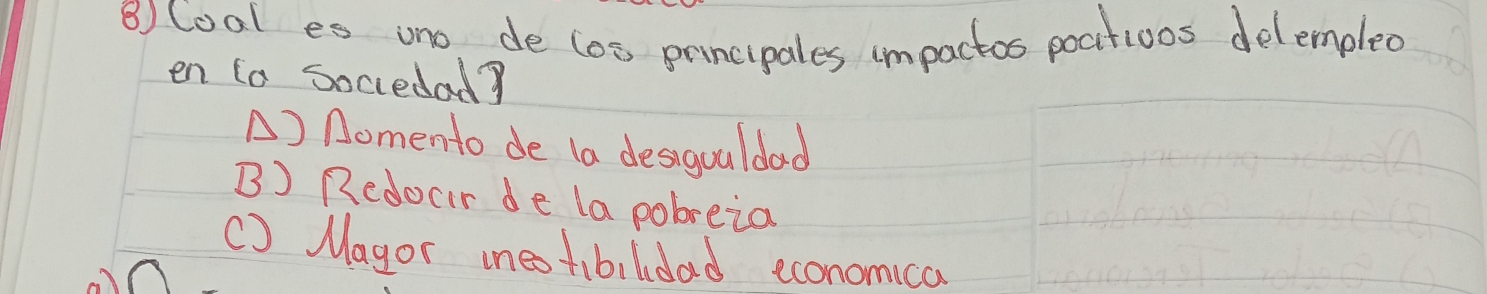 8) Coal es uno de los principales impactos pocitivos delempleo
en la Sociedad?
A) Aomento de la desigualdad
B) Redocir de la pobreza
C) Magor inestibilidad economica